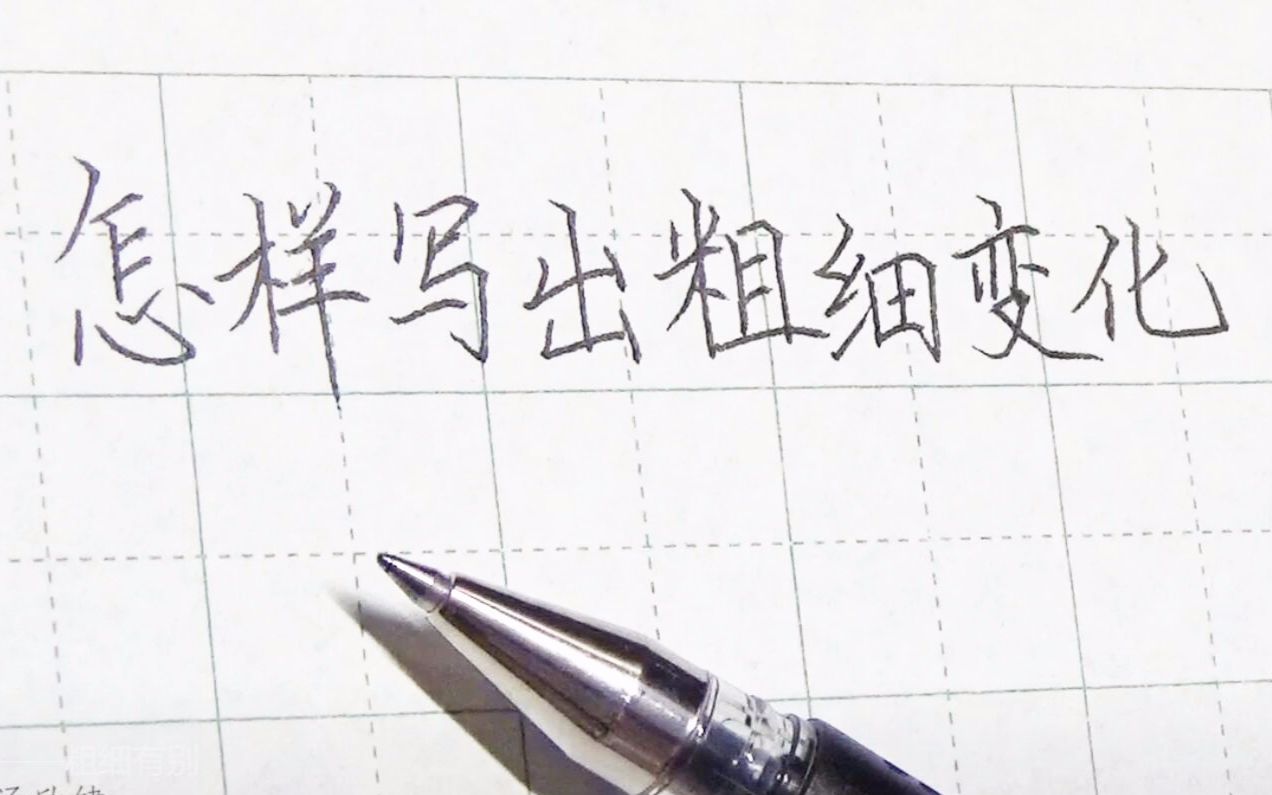 怎样写出粗细变化
粗细有别